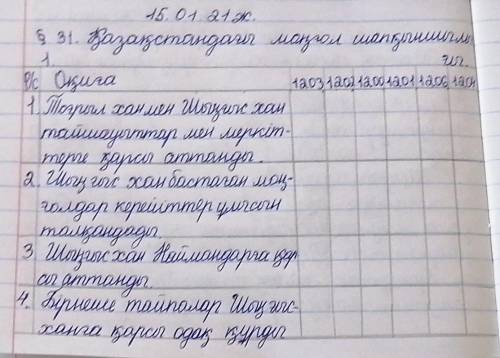 15.01.21ж.
§ 31. Қазақстандағы моңғол шапқыншылы
1 ғы.
Р/с Оқиға 1203 1202 1200 1201 1206 1204
1 Тоғрыл хан мен Шыңғыс хан
тайшауыттар мен меркіт-
терге қарсы аттанды.
2. Шыңғыс хан бастаған моң-
ғолдар керейіттер ұлысын
талқандады
3 Шыңғыс хан Наймандарға қар
сы аттанды.
4. Бірнеше тайпалар Шыңғыс-
ханға қарсы одақ құрды